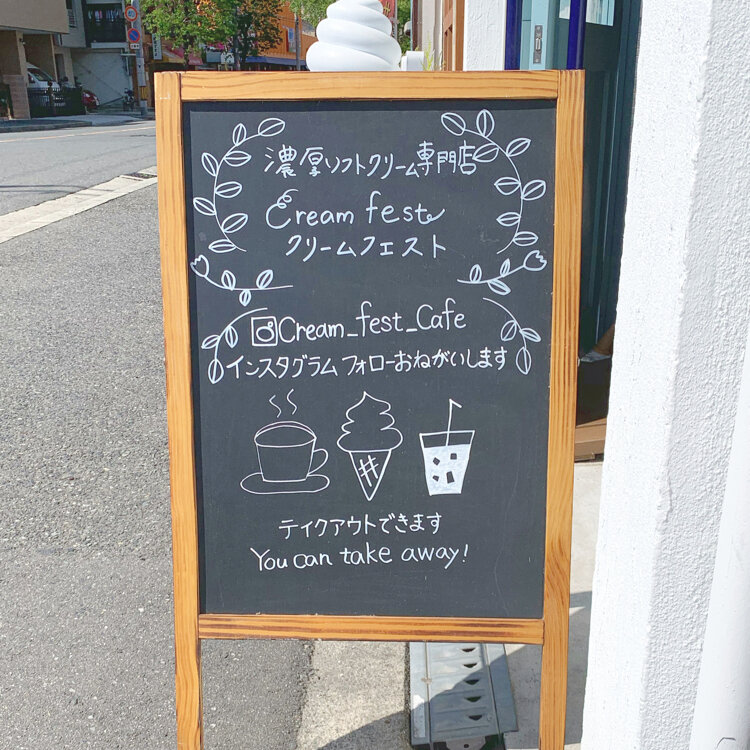 濃厚ソフトクリーム専門店
Cream fest
クリームフェスト
Cream_fest_Cafe
インスタグラムフォローおねがいします
テイクアウトできます
You can take away!